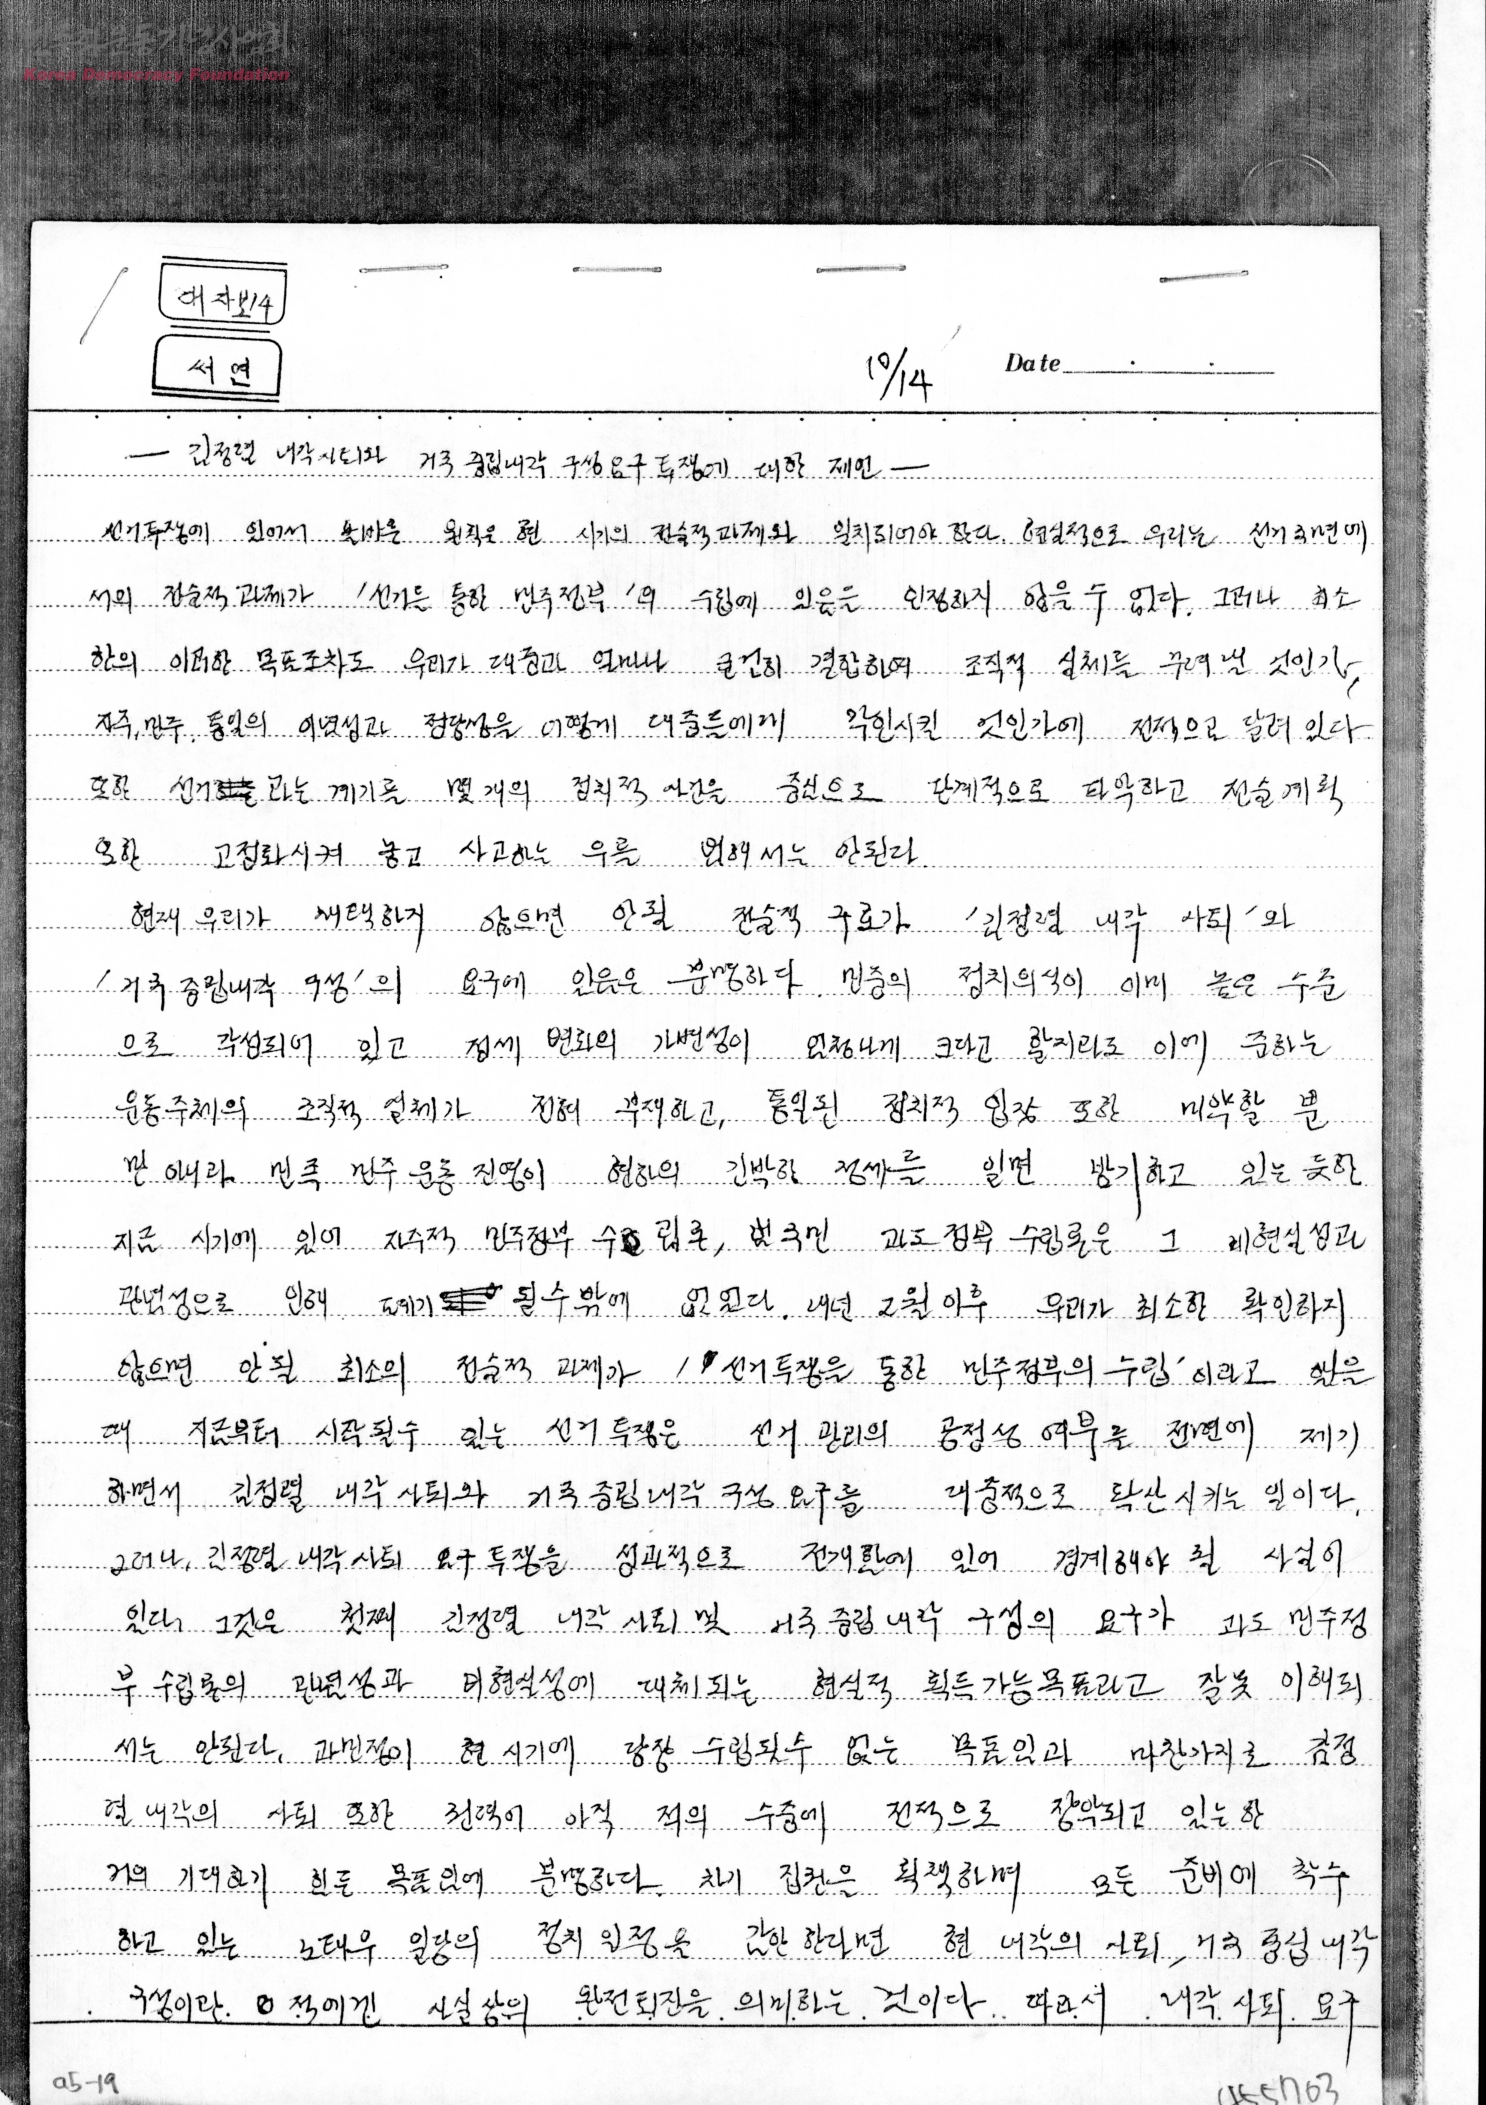 민주화운동기념사업회
Korea Democracy Foundation
대자보14
서연
10/14 Date
— 김정렬 내각사퇴와 거국 중립내각 구성 요구 투쟁에 대한 제언 —
선거투쟁에 있어서 올바른 원칙은 현 시기의 전술적 과제와 일치되어야 한다. 현실적으로 우리는 선거국면에
서의 전술적 과제가 '선거를 통한 민주정부'의 수립에 있음을 인정하지 않을 수 없다. 그러나 최소
한의 이러한 목표조차도 우리가 대중과 얼마나 굳건히 결합하여 조직적 실체를 꾸려 낼 것인가,
자주, 민주, 통일의 이념성과 정당성을 어떻게 대중들에게 각인시킬 것인가에 전적으로 달려 있다
또한 선거 라는 계기를 몇 개의 정치적 사건을 중심으로 단계적으로 파악하고 전술계획
또한 고정화시켜 놓고 사고하는 우를 범해서는 안된다.
현재 우리가 채택하지 않으면 안될 전술적 구호가 '김정렬 내각 사퇴'와
'거국 중립내각 구성'의 요구에 있음은 분명하다. 민중의 정치의식이 이미 높은 수준
으로 각성되어 있고 정세 변화의 가변성이 엄청나게 크다고 할지라도 이에 준하는
운동주체의 조직적 실체가 전혀 부재하고, 통일된 정치적 입장 또한 미약할 뿐
만 아니라 민족 민주 운동 진영이 현하의 긴박한 정세를 일면 방기하고 있는 듯한
지금 시기에 있어 자주적 민주정부 수립론, 범국민 과도정부 수립론은 그 비현실성과
관념성으로 인해 폐기 될 수 밖에 없었다. 내년 2월 이후 우리가 최소한 확인하지
않으면 안될 최소의 전술적 과제가 '선거투쟁을 통한 민주정부의 수립'이라고 했을
때 지금부터 시작될수 있는 선거 투쟁은 선거 관리의 공정성 여부를 전면에 제기
하면서 김정렬 내각 사퇴와 거국 중립 내각 구성 요구를 대중적으로 확산시키는 일이다.
그러나, 김정렬 내각 사퇴 요구 투쟁을 성과적으로 전개함에 있어 경계해야 될 사실이
있다. 그것은 첫째 김정렬 내각 사퇴 및 거국 중립 내각 구성의 요구가 과도 민주정
부 수립론의 관념성과 비현실성에 대체되는 현실적 획득가능목표라고 잘못 이해되
서는 안된다. 과민정이 현 시기에 당장 수립될수 없는 목표임과 마찬가지로 김정
렬 내각의 사퇴 또한 권력이 아직 적의 수중에 전적으로 장악되고 있는 한
거의 기대하기 힘든 목표임에 분명하다. 차기 집권을 획책하며 모든 준비에 착수
하고 있는 노태우 일당의 정치 일정을 감안 한다면 현 내각의 사퇴, 거국 중립 내각
구성이란 적에겐 사실상의 완전퇴진을 의미하는 것이다. 따라서 내각 사퇴 요구
a5-19
455703